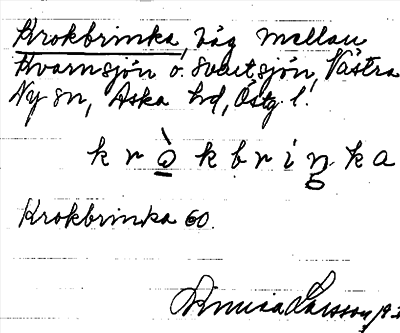 Krokbrinka, väg mellan
Kvarnsjön o. Svartsjön, Västra
Ny sn, Aska hd, Östg l.
kròkbriŋka
Krokbrinka 60.
Larsson